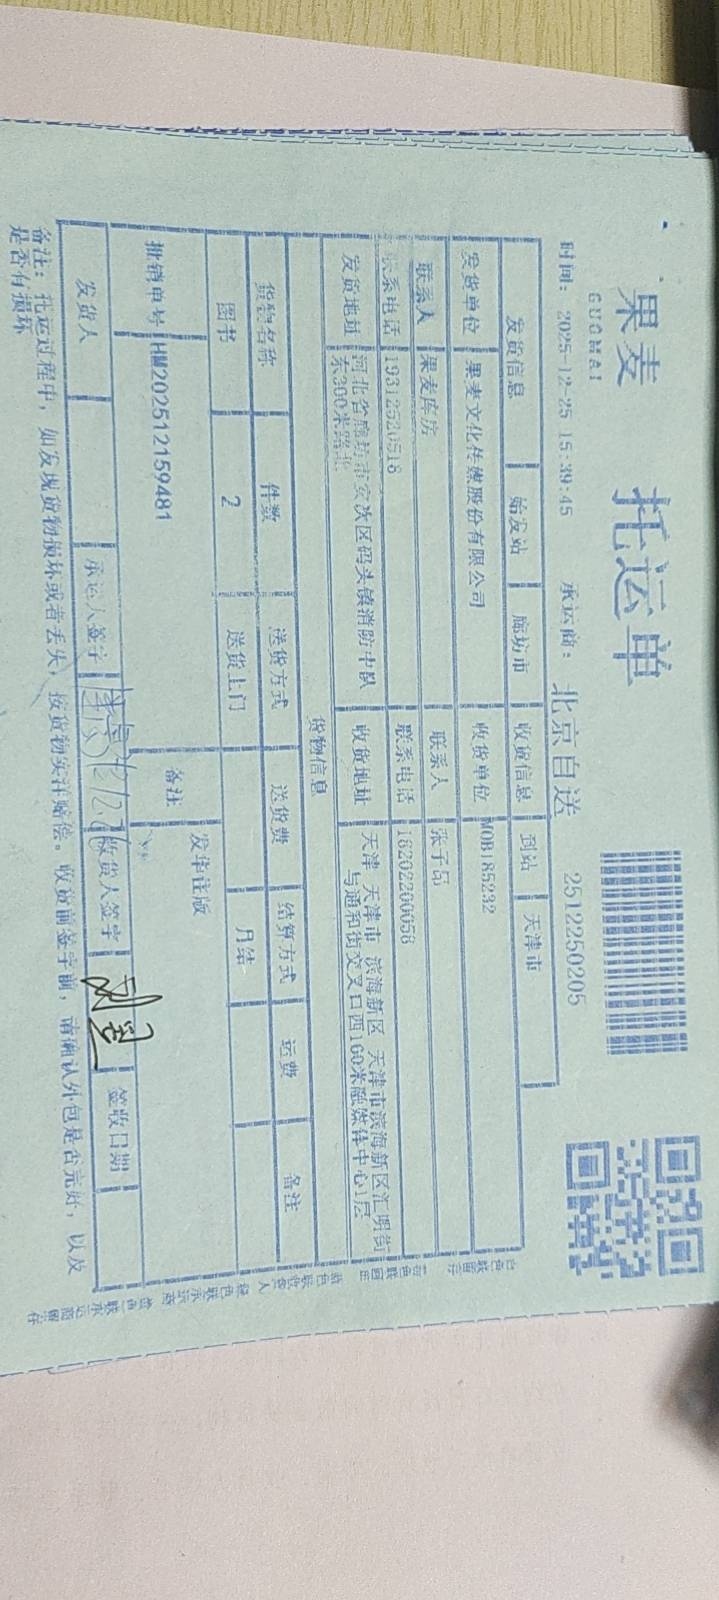 果麦
GUOMAI
托运单
2512250205
时间: 2025-12-25 15:39:45 承运商: 北京自送
发货信息 始发站 廊坊市 收货信息 到站 天津市
发货单位 果麦文化传媒股份有限公司 收货单位 MOB185232
联系人 果麦库房 联系人 张子
联系电话 19312520516 联系电话 18202200058
发货地址 河北省廊坊市安次区码头镇消防中队东300米路北 收货地址 天津 天津市 滨海新区 天津市滨海新区汇明街与通和街交叉口西160米融媒体中心1层
货物信息
货物名称 件数 送货方式 送货费 结算方式 运费 备注
图书 2 送货上门 月结
批销单号 HM202512159481 备注 发华往版
发货人 承运人签字 收货人签字 签收日期
备注: 托运过程中, 如发现货物损坏或者丢失, 按货物实洋赔偿。收货前签字前, 请确认外包是否完好, 以及
是否有损坏